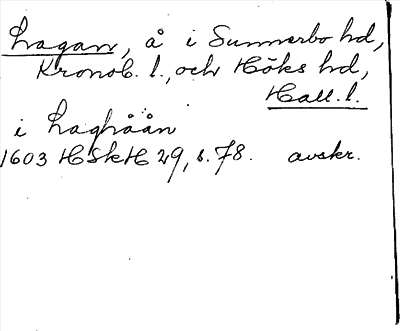 Lagan, å i Sunnerbo hd,
Kronob. l., och Höks hd,
Hall. l.
i Laghåån
1603 HSkH 29, s. 78. avskr.